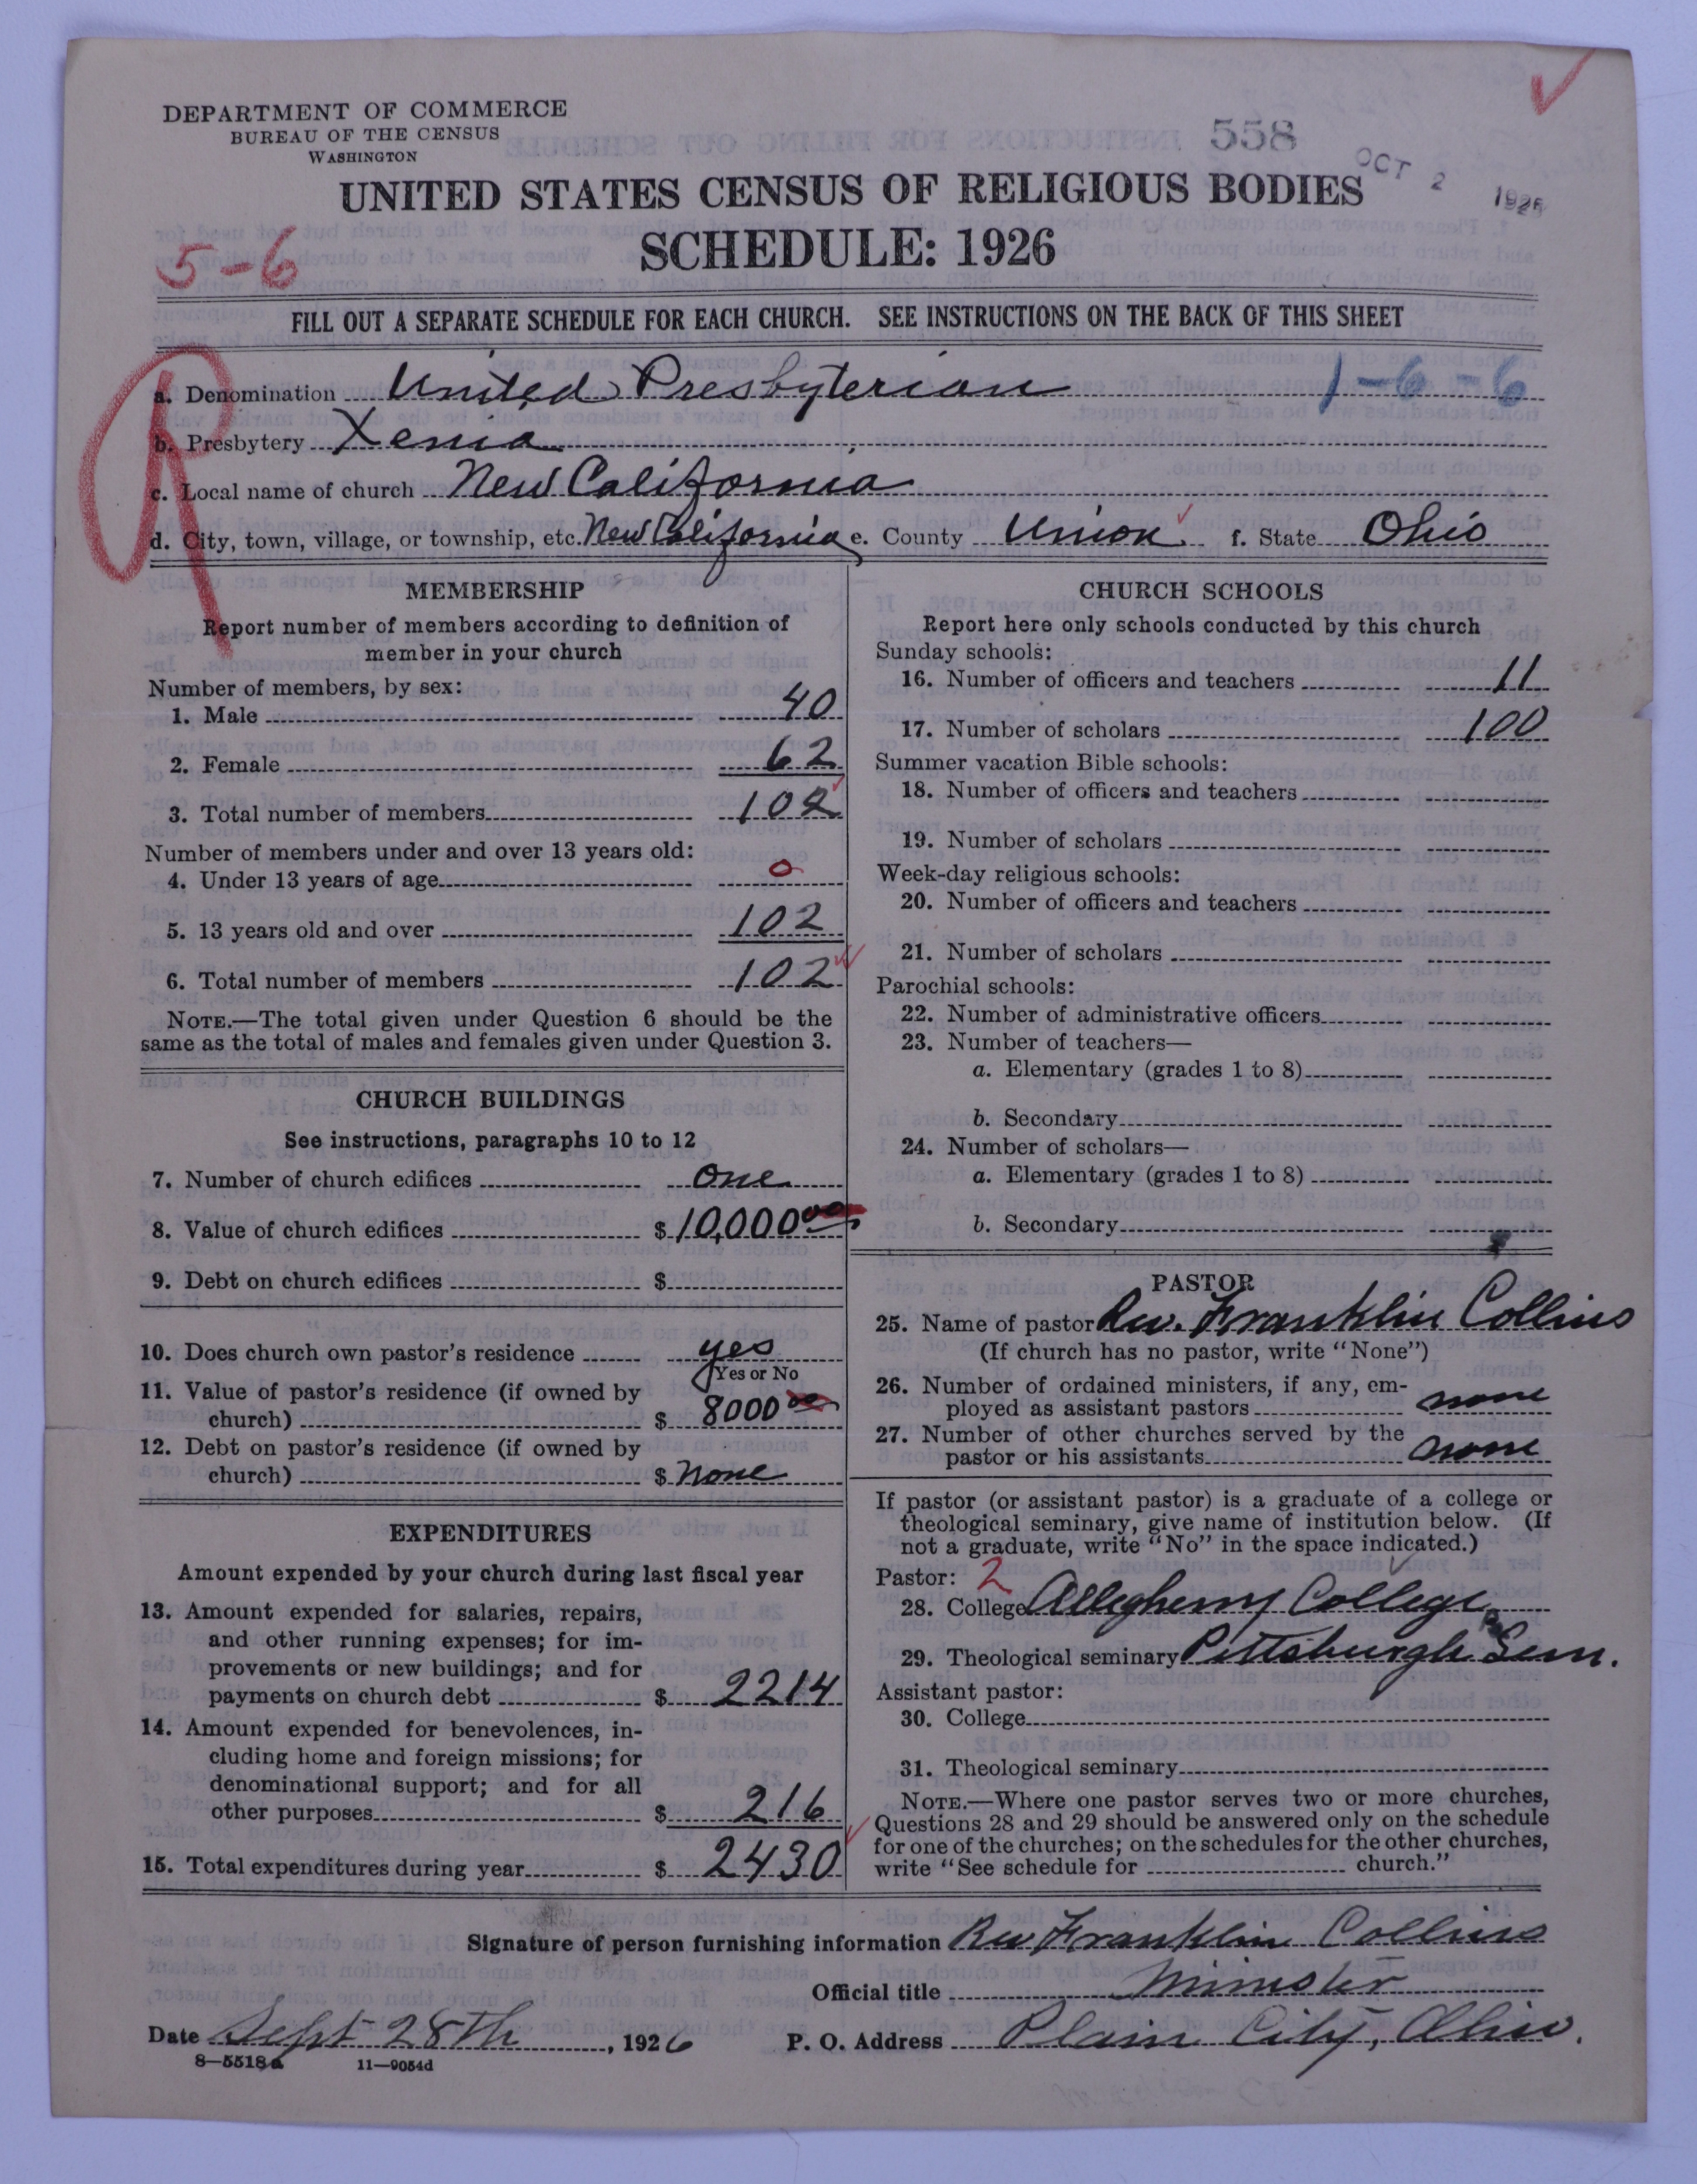 DEPARTMENT OF COMMERCE
BUREAU OF THE CENSUS
WASHINGTON
558
OCT 2 1926
UNITED STATES CENSUS OF RELIGIOUS BODIES
SCHEDULE: 1926
5-6
FILL OUT A SEPARATE SCHEDULE FOR EACH CHURCH. SEE INSTRUCTIONS ON THE BACK OF THIS SHEET
a. Denomination United Presbyterian 1-6-6
b. Presbytery Xenia
c. Local name of church New California
d. City, town, village, or township, etc. New California e. County Union f. State Ohio
MEMBERSHIP
Report number of members according to definition of
member in your church
Number of members, by sex:
1. Male 40
2. Female 62
3. Total number of members 102
Number of members under and over 13 years old:
4. Under 13 years of age 0
5. 13 years old and over 102
6. Total number of members 102
NOTE.—The total given under Question 6 should be the
same as the total of males and females given under Question 3.
CHURCH BUILDINGS
See instructions, paragraphs 10 to 12
7. Number of church edifices one
8. Value of church edifices $10,000 00
9. Debt on church edifices $
10. Does church own pastor's residence yes
Yes or No
11. Value of pastor's residence (if owned by
church) $ 8000 00
12. Debt on pastor's residence (if owned by
church) $ none
EXPENDITURES
Amount expended by your church during last fiscal year
13. Amount expended for salaries, repairs,
and other running expenses; for im-
provements or new buildings; and for
payments on church debt $ 2214
14. Amount expended for benevolences, in-
cluding home and foreign missions; for
denominational support; and for all
other purposes $ 216
15. Total expenditures during year $ 2430
CHURCH SCHOOLS
Report here only schools conducted by this church
Sunday schools:
16. Number of officers and teachers 11
17. Number of scholars 100
Summer vacation Bible schools:
18. Number of officers and teachers
19. Number of scholars
Week-day religious schools:
20. Number of officers and teachers
21. Number of scholars
Parochial schools:
22. Number of administrative officers
23. Number of teachers—
a. Elementary (grades 1 to 8)
b. Secondary
24. Number of scholars—
a. Elementary (grades 1 to 8)
b. Secondary
PASTOR
25. Name of pastor Rev. Franklin Collins
(If church has no pastor, write "None")
26. Number of ordained ministers, if any, em-
ployed as assistant pastors none
27. Number of other churches served by the
pastor or his assistants none
If pastor (or assistant pastor) is a graduate of a college or
theological seminary, give name of institution below. (If
not a graduate, write "No" in the space indicated.)
Pastor: 2
28. College Allegheny College
29. Theological seminary Pittsburgh Sem.
Assistant pastor:
30. College
31. Theological seminary
NOTE.—Where one pastor serves two or more churches,
Questions 28 and 29 should be answered only on the schedule
for one of the churches; on the schedules for the other churches,
write "See schedule for church."
Signature of person furnishing information Rev Franklin Collins
Official title Minister
Date Sept 28th, 1926 P. O. Address Plain City, Ohio.
8—5518a 11—9054d